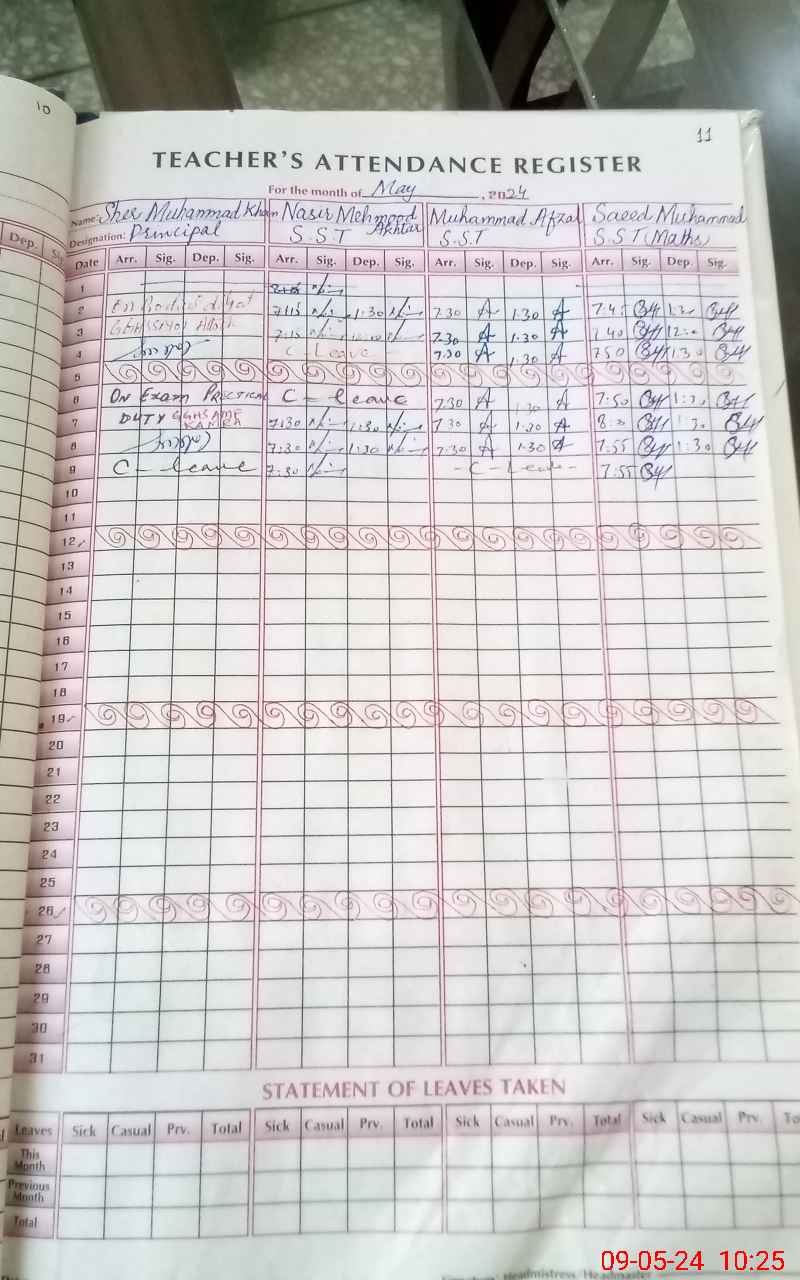 10
11
TEACHER'S ATTENDANCE REGISTER
For the month of May, 2024
Name: Sher Muhammad Khan Nasir Mehmood Akhtar Muhammad Afzal Saeed Muhammad
Designation: Principal S.S.T S.S.T S.S.T (Maths)
Dep. Date Arr. Sig. Dep. Sig. Arr. Sig. Dep. Sig. Arr. Sig. Dep. Sig. Arr. Sig. Dep. Sig.
1
2 7:15 1:30 7.30 A 1.30 A
3 7:15 7.30 A 1.30 A 7.40
4 C-Leave 7.30 A 1.30 A 7.50 1.30
5
6 ON EXAM PRACTICAL C-leave 7.30 A 1.30 A 7:50
7 DUTY GGHS AWE KAMRA 7:30 1:30 7.30 A 1.30 A
8 7:30 1:30 7.30 A 1.30 A 7.55 1:30
9 C-leave 7:30 -C-Leave- 7:55
10
11
12
13
14
15
16
17
18
19
20
21
22
23
24
25
26
27
28
29
30
31
STATEMENT OF LEAVES TAKEN
Leaves Sick Casual Prv. Total Sick Casual Prv. Total Sick Casual Prv. Total Sick Casual Prv.
This Month
Previous Month
Total
09-05-24 10:25